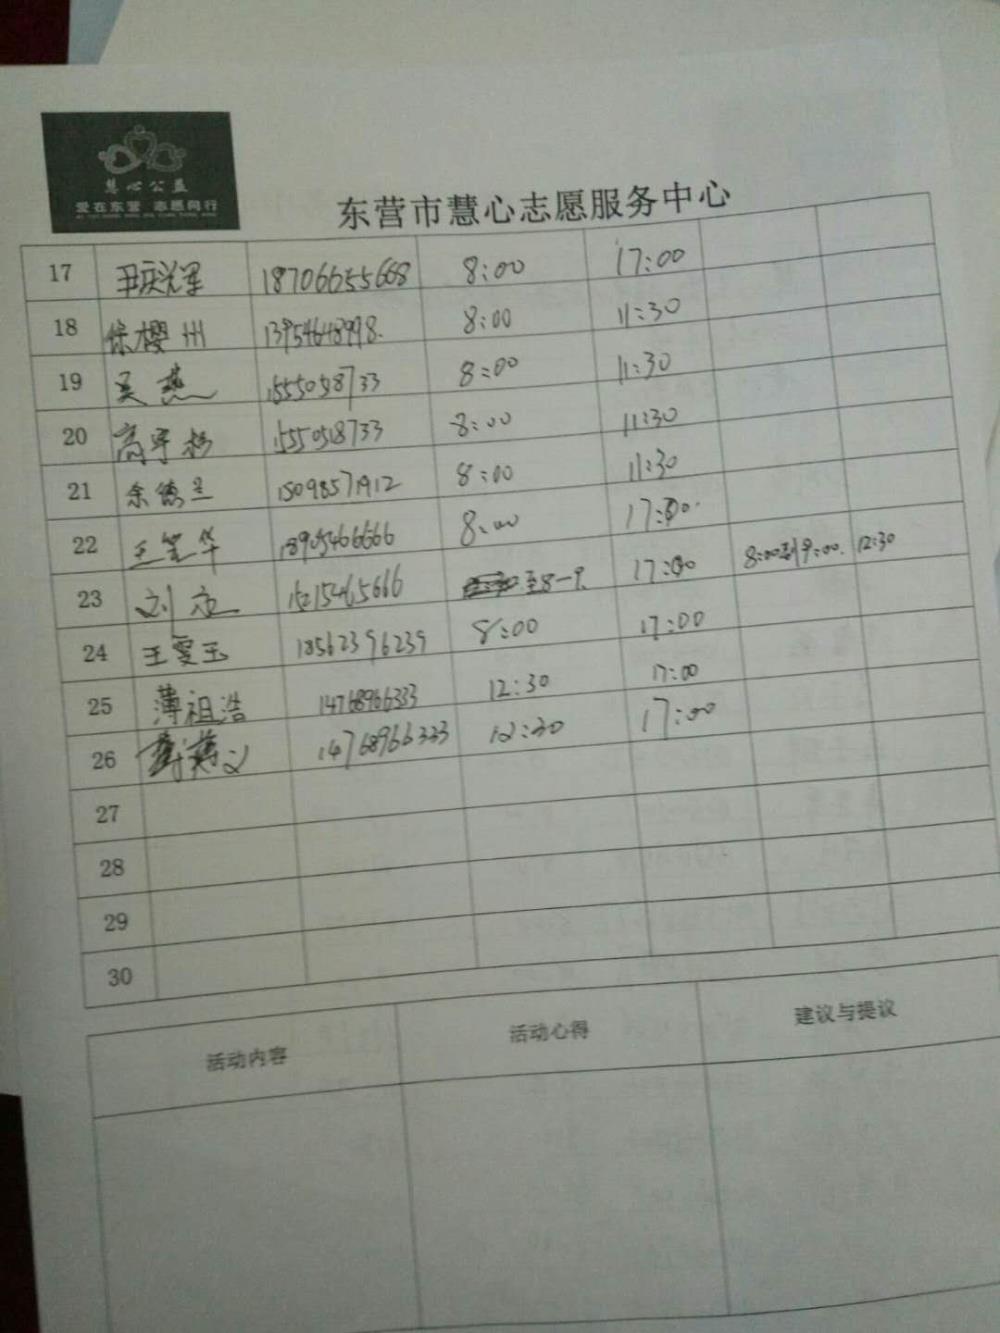 慧心公益
爱在东营 志愿同行
东营市慧心志愿服务中心
17 18706655668 8:00 17:00
18 徐樱州 13954648998. 8:00 11:30
19 吴燕 1555058733 8:00 11:30
20 1550518733 8:00 11:30
21 余德兰 15098571912 8:00 11:30
22 王笙华 18905466666 8:00 17:00
23 刘 15215465666 至8-9. 17:00 8:00到9:00. 12:30
24 王雯玉 18562396239 8:00 17:00
25 薄祖浩 14768966333 12:30 17:00
26 14768966333 12:30 17:00
27
28
29
30
活动内容 活动心得 建议与提议